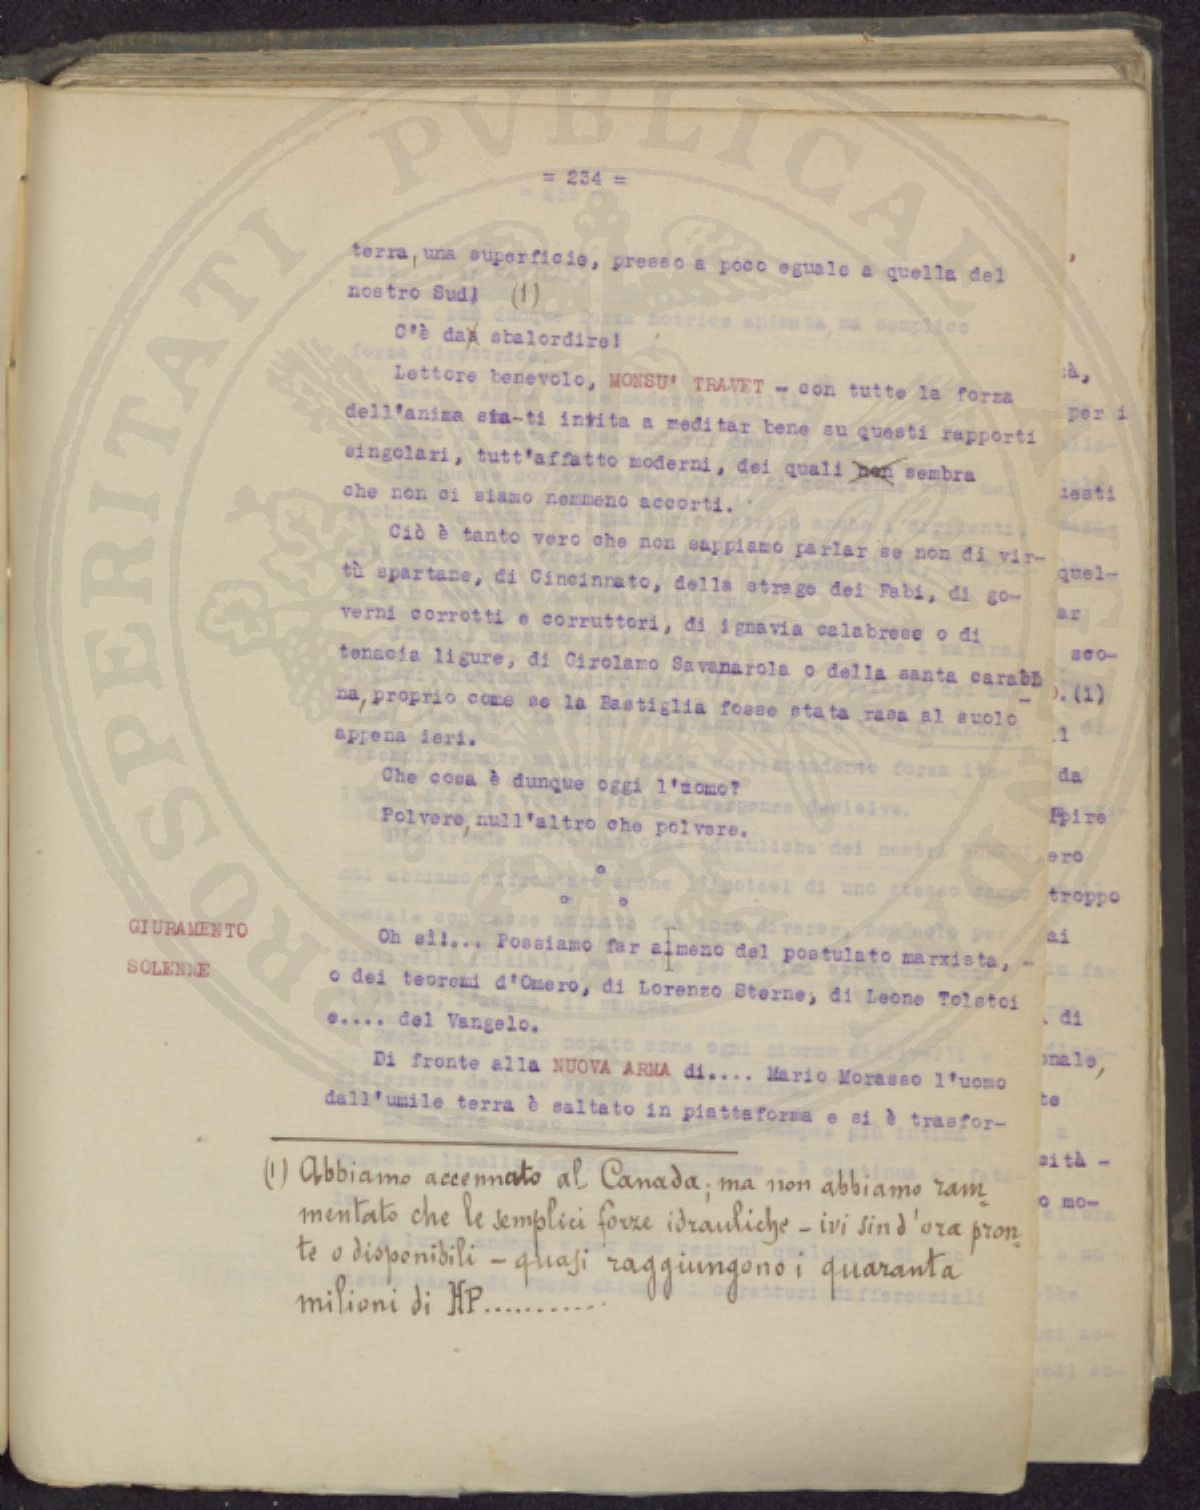 = 234 =
terra, una superficie, presso a poco eguale a quella del
nostro Sud! (1)
C'è da sbalordire!
Lettore benevolo, MONSU' TRAVET - con tutte la forza
dell'anima sua-ti invita a meditar bene su questi rapporti
singolari, tutt'affatto moderni, dei quali non sembra
che non ci siamo nemmeno accorti.
Ciò è tanto vero che non sappiamo parlar se non di vir-
tù spartane, di Cincinnato, della strage dei Fabi, di go-
verni corrotti e corruttori, di ignavia calabrese o di
tenacia ligure, di Girolamo Savanarola o della santa carabi
na, proprio come se la Bastiglia fosse stata rasa al suolo
appena ieri.
Che cosa è dunque oggi l'uomo?
Polvere, null'altro che polvere.
GIURAMENTO
SOLENNE
Oh sì!... Possiamo far almeno del postulato marxista, -
o dei teoremi d'Omero, di Lorenzo Sterne, di Leone Tolstoi
e.... del Vangelo.
Di fronte alla NUOVA ARMA di.... Mario Morasso l'uomo
dall'umile terra è saltato in piattaforma e si è trasfor-
(1) Abbiamo accennato al Canada; ma non abbiamo ram-
mentato che le semplici forze idrauliche - ivi sin d'ora pron-
te o disponibili - quasi raggiungono i quaranta
milioni di HP...........
per i
uesti
quel-
ar
sco-
o.(1)
da
troppo
di
onale,
cità -
o mo-
PROSPERITATI PVBLICAE